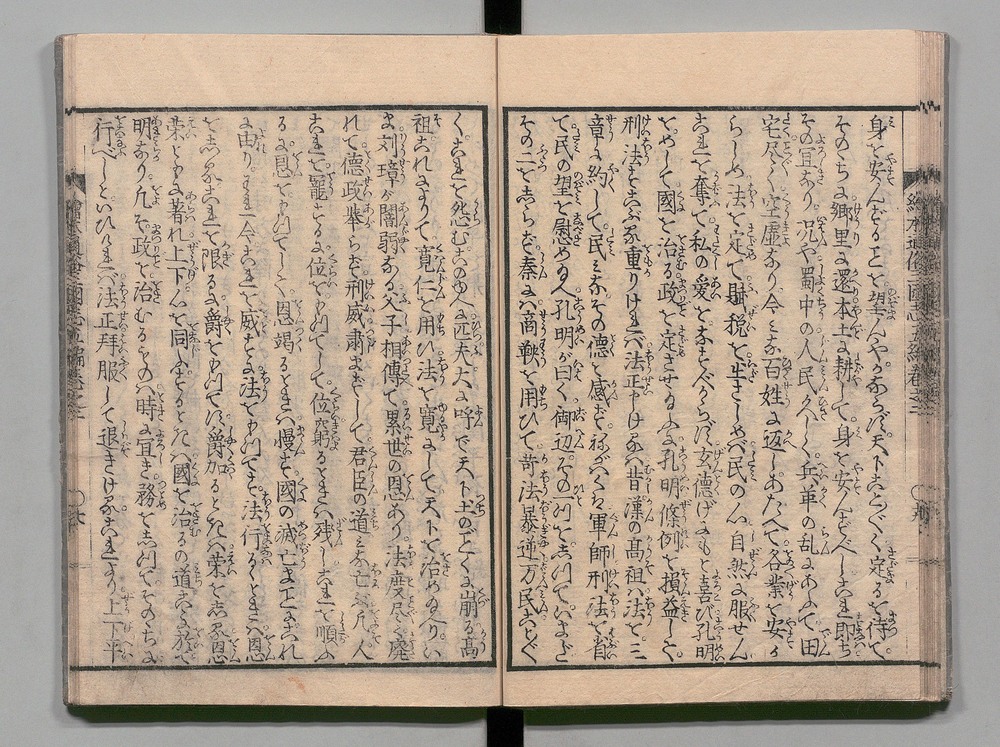 身を安んずることを望んやかならず天下ことごとく定るを待て
そのちに郷里に還本土に耕して身を安んずべしこれ即ち
その宜なり況や蜀中の人民久しく兵革の乱にあふて田
宅尽く空虚なり今みな百姓に返しあたへて各業を安か
らしめ法を定て賦税を出さしめバ民の心自然に服せん
これを奪て私の愛をなすべからず玄徳げにもと喜び孔明
をめして國を治る政を定させらるに孔明條例を損益して
刑法すこぶる重りけれバ法正申けるハ昔漢の高祖ハ法を三
章に約して民みなその徳を感ず稱ハくは軍師刑法を省
て民の望を慰めたまへ孔明が曰く御辺その一ツを知ていまだ
その二をしらず秦ハ商鞅を用ひて苛法暴逆万民ことごと
く怨むこのゆへに匹夫大に呼で天下土のごとくに崩る高
祖これによりて寛仁を用ひ法を寛にして天下を治めたまへりい
ま刘璋が闇弱なる父子相傳て累世の恩あり法度尽く廃
れて徳政挙らず刑威粛まずして君臣の道みな亡ぶ凡人
これを寵するに位をもつてして位窮るときハ残しこれを順ふ
るに恩をもつてして恩竭るときハ慢ず國の滅亡まことにこれ
に由りわれ今これを威すに法をもつてす法行るときハ恩
をしるこれを限るに爵をもつてす爵加るときハ榮をしる恩
榮ともに著れ上下心を同ふするときハ國を治るの道こゝに於て
明なり凡そ政を治むるものハ時に宜き務をしつてそのちに
行べしといひけれバ法正拜服して退きけるこれより上下平